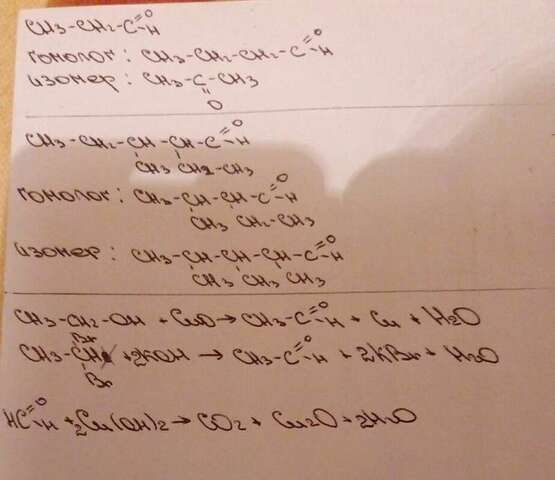 CH3-CH2-C=O
H
гомолог: CH3-CH2-CH2-C=O
H
изомер: CH3-C-CH3
O
CH3-CH2-CH-CH-C=O
H
CH3 CH2-CH3
гомолог: CH3-CH-CH-C=O
H
CH3 CH2-CH3
изомер: CH3-CH-CH-CH-C=O
H
CH3 CH3 CH3
CH3-CH2-OH + CuO → CH3-C=O
H + Cu + H2O
Br
CH3-CH + 2KOH → CH3-C=O
H + 2KBr + H2O
Br
HC=O
H + 2Cu(OH)2 → CO2 + Cu2O + 2H2O